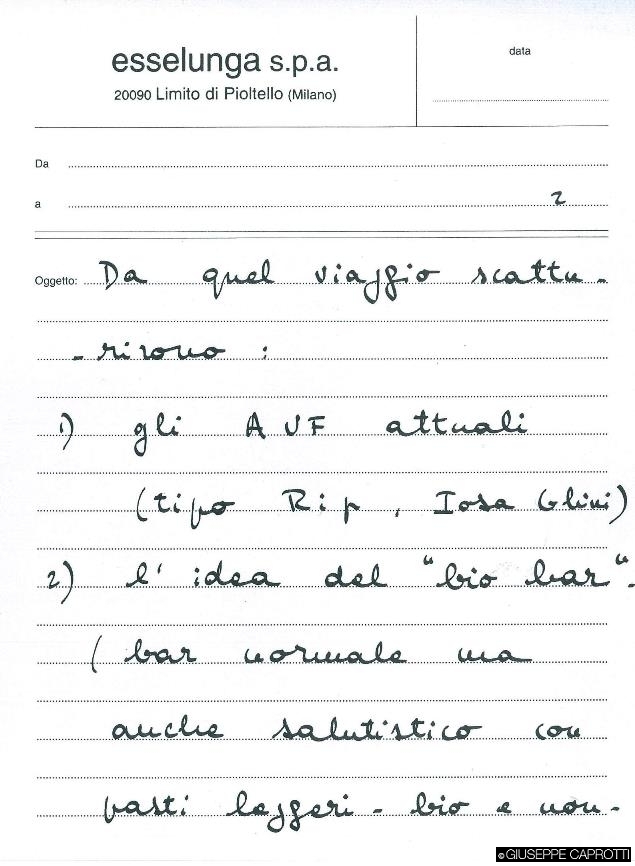 esselunga s.p.a.
20090 Limito di Pioltello (Milano)
data
Da
a 2
Oggetto: Da quel viaggio scattu-
-rirono :
1) gli AVF attuali
(tipo Rip, Iosa Ghini)
2) l'idea del "bio bar".
( bar normale ma
anche salutistico con
pasti leggeri - bio e non -
©GIUSEPPE CAPROTTI